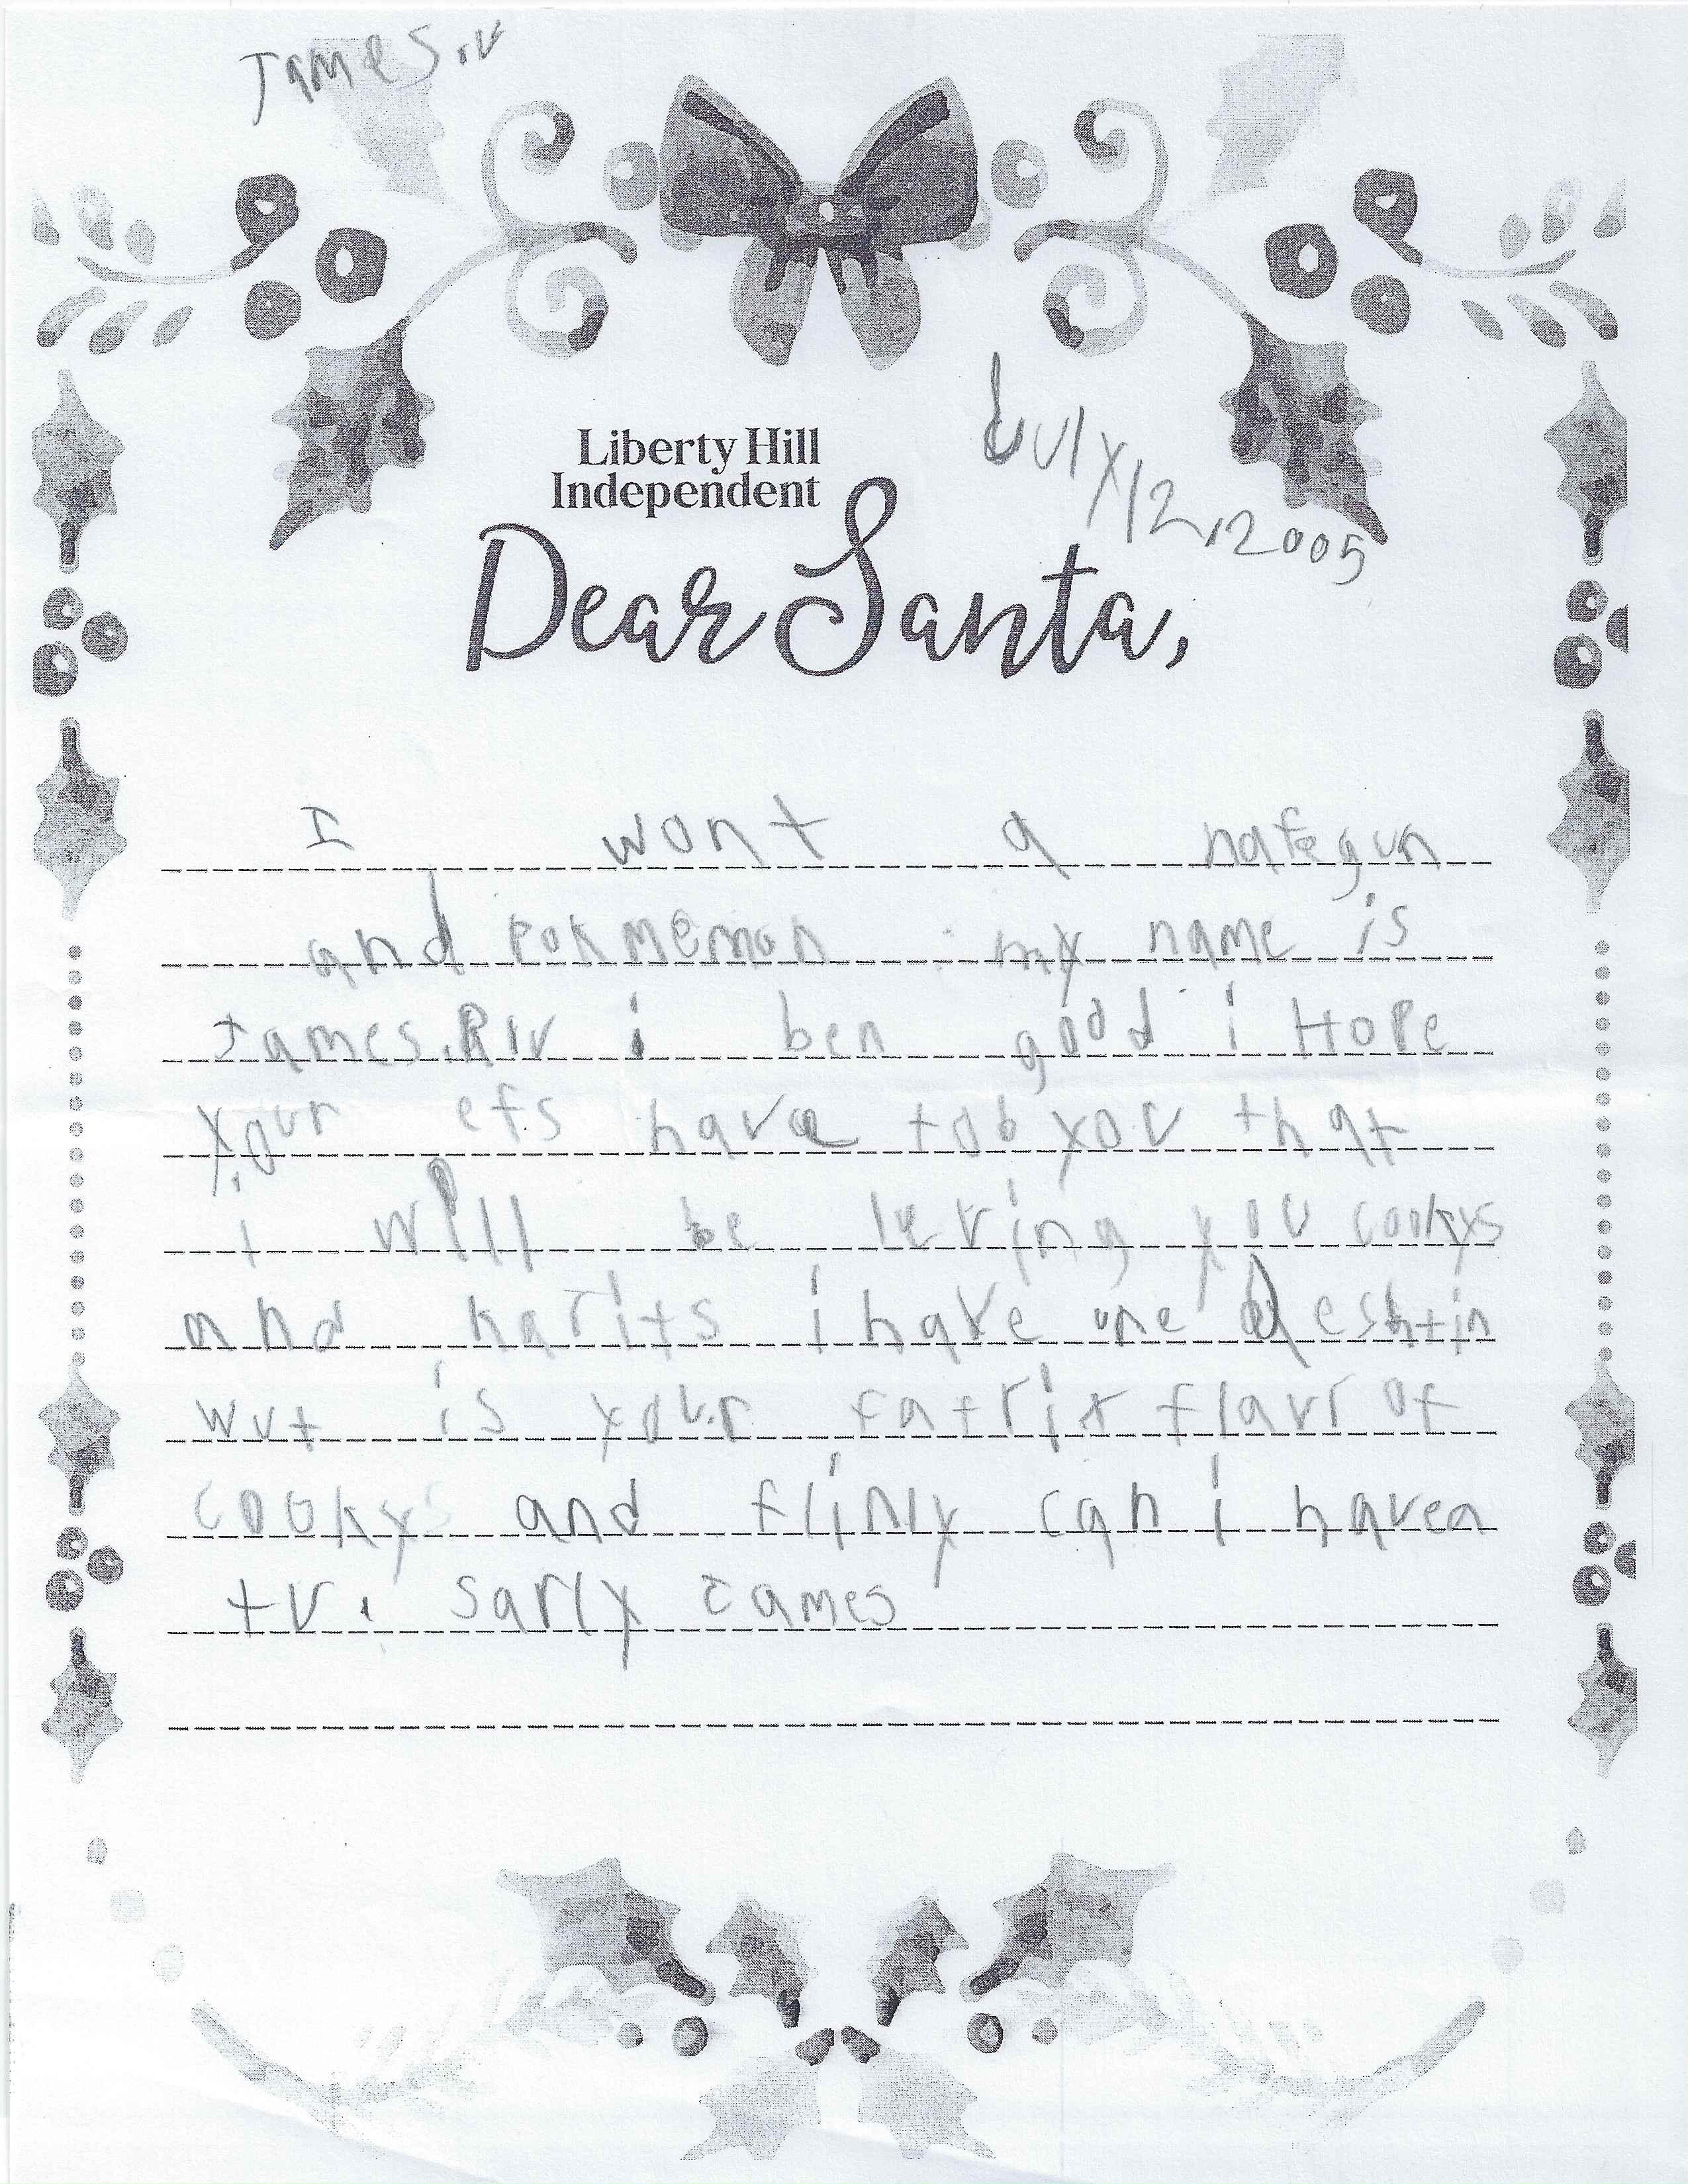 James.v
Liberty Hill
Independent
July/12,2005
Dear Santa,
I wont a nafegun
and pokmemon my name is
James.Riv i ben good i HoPe
your efs have tob you that
i will be leving you cookys
and karits i have one qeshtin
wut is your fatrit flavr of
cookys and flinly can i havea
tv. sarly James